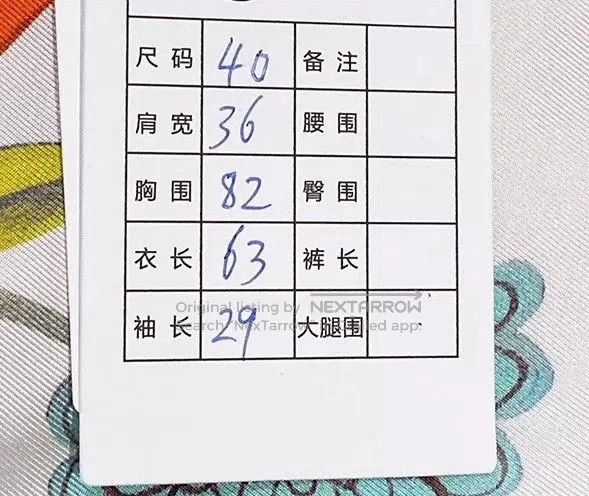 尺码 40 备注
肩宽 36 腰围
胸围 82 臀围
衣长 63 裤长
Original listing by NEXTARROW
袖长 29 大腿围